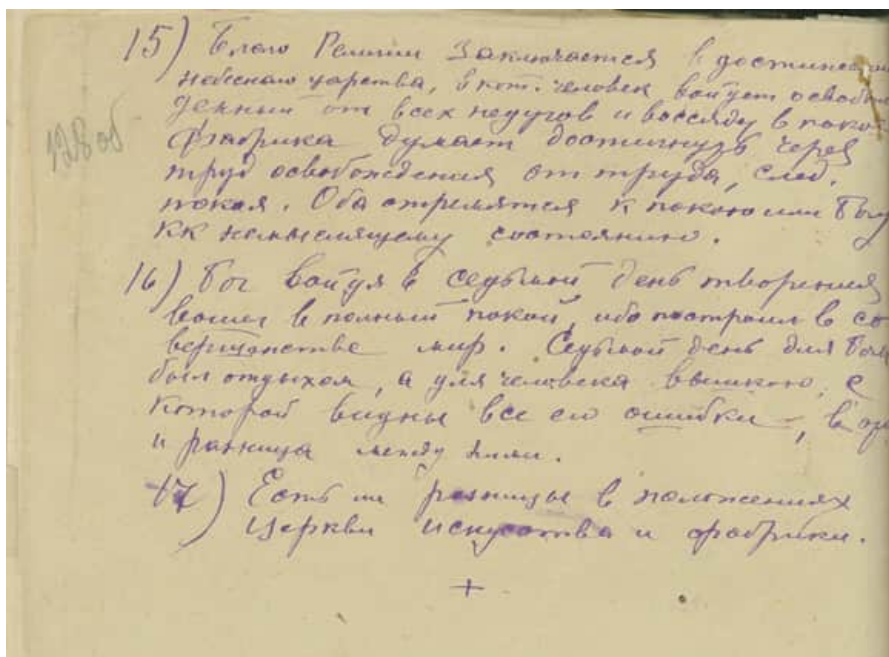 15) Благо Религии Заключается в достижении
небесного царства, в кот. человек войдет освобож
денный от всех недугов и воссяду в покое
128 об
Фабрика думает достигнуть через
труд освобождения от труда, след.
покоя. Оба стремятся к покою или Богу
кк немыслящему состоянию.
16) Бог войдя в седьмой день творения
вошел в полный покой, ибо построил в со
вершенстве мир. Седьмой день для Бога
был отдыхом, а для человека вышкою, с
которой видны все его ошибки,
и разница между ними.
17) Есть ли разницы в положениях
Церкви искусства и фабрики.
+